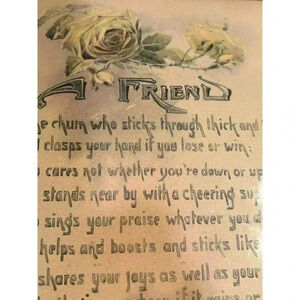 A FRIEND
e chum who sticks through thick and
clasps your hand if you lose or win;
cares not whether you're down or up
stands near by with a cheering su
sings your praise whatever you d
helps and boosts and sticks like
shares your joys as well as your